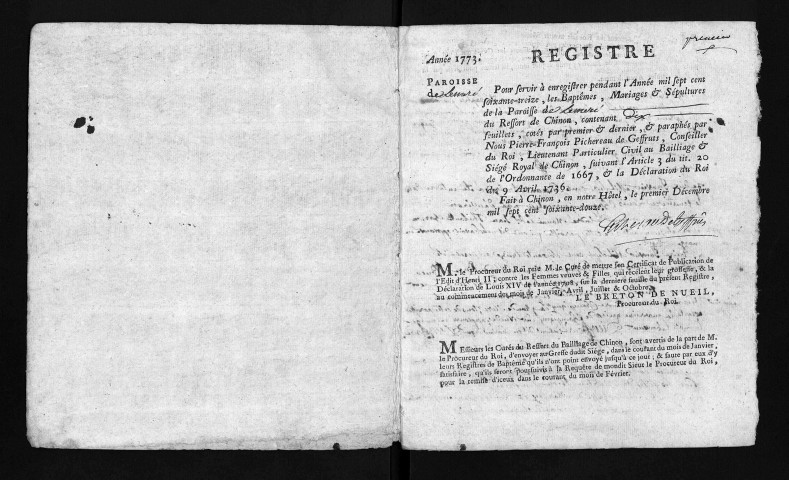 premier
Année 1773.
REGISTRE
PAROISSE
de Lemeré
Pour servir à enregistrer pendant l'Année mil sept cent
soixante-treize, les Baptêmes, Mariages & Sépultures
de la Paroisse de Lemeré
du Ressort de Chinon, contenant dix
feuillets, cotés par premier & dernier, & paraphés par
Nous Pierre-François Pichereau de Geffruts, Conseiller
du Roi, Lieutenant Particulier Civil au Bailliage &
Siégé Royal de Chinon, suivant l'Article 3 du tit. 20
de l'Ordonnance de 1667, & la Déclaration du Roi
du 9 Avril 1736.
Fait à Chinon, en notre Hôtel, le premier Décembre
mil sept cent soixante-douze.
M. le Procureur du Roi prie M. le Curé de mettre son Certificat de Publication de
l'Edit d'Henri II; contre les Femmes veuves & Filles, qui récélent leur grossesse, & la
Déclaration de Louis XIV de l'année 1708, sur la derniere feuille du présent Registre,
au commencement des mois de Janvier, Avril, Juillet & Octobre.
LE BRETON DE NUEIL,
Procureur du Roi.
Messieurs les Curés du Ressort du Bailliage de Chinon, sont avertis de la part de M.
le Procureur du Roi, d'envoyer au Greffe dudit Siège, dans le courant du mois de Janvier,
leurs Registres de Baptême qu'ils n'ont point envoyé jusqu'à ce jour; & faute par eux d'y
satisfaire, qu'ils seront poursuivis à la Requête de mondit Sieur le Procureur du Roi,
pour la remise d'iceux dans le courant du mois de Février.